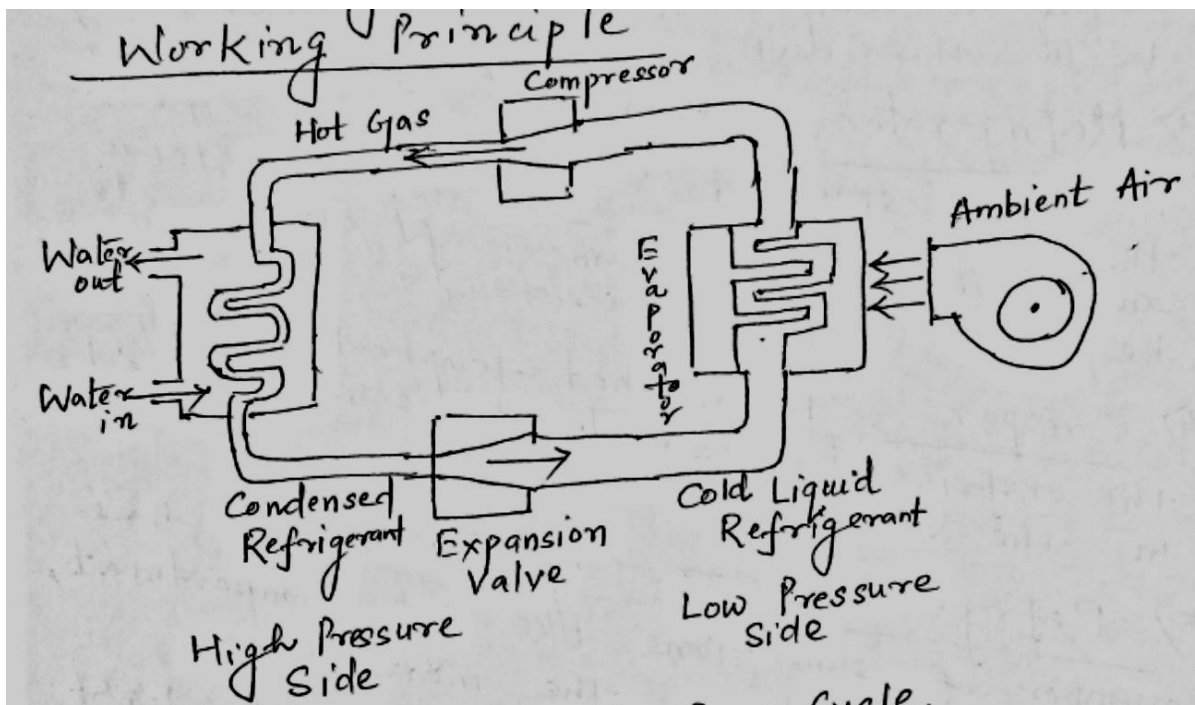 Working Principle
Compressor
Hot Gas
Ambient Air
Water
out
Evaporator
Water
in
Condensed
Refrigerant
Expansion
Valve
Cold Liquid
Refrigerant
High Pressure
Side
Low Pressure
Side
Cycle